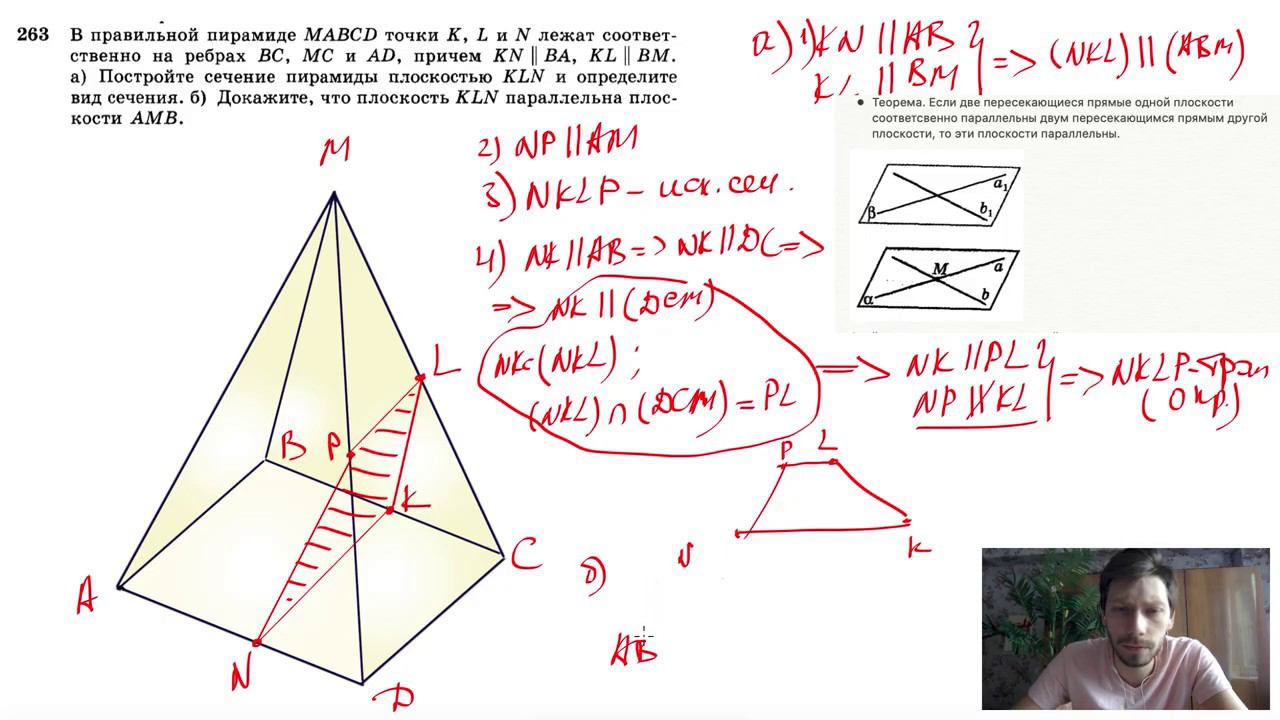 263 В правильной пирамиде MABCD точки K, L и N лежат соответ-
ственно на ребрах BC, MC и AD, причем KN ∥ BA, KL ∥ BM.
а) Постройте сечение пирамиды плоскостью KLN и определите
вид сечения. б) Докажите, что плоскость KLN параллельна плос-
кости AMB.
а) 1) KN || AB
KL || BM => (NKL) || (ABM)
• Теорема. Если две пересекающиеся прямые одной плоскости
соответсвенно параллельны двум пересекающимся прямым другой
плоскости, то эти плоскости параллельны.
β a₁ b₁
α M a b
2) NP || AM
3) NKLP – иск. сеч.
4) NK || AB => NK || DC =>
=> NK || (DCM)
NK⊂(NKL) ;
(NKL) ∩ (DCM) = PL
=> NK || PL
NP ∦ KL => NKLP-трап
(опр.)
P L
N K
M
L
B P
K
A C
N
D
б)
AB